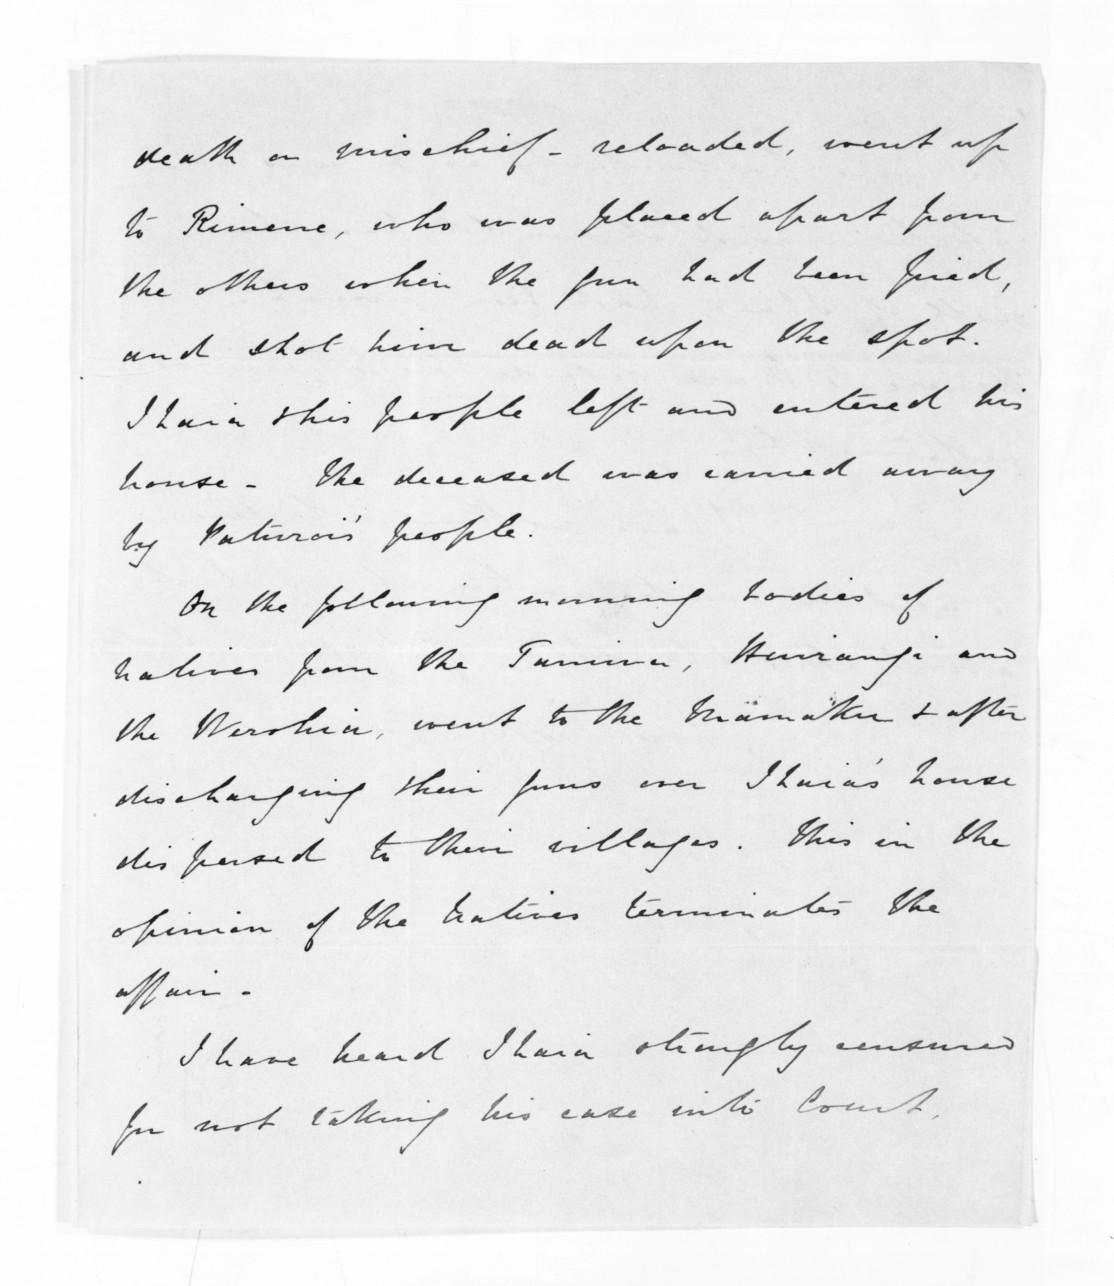 death or mischief - reloaded, went up
to Rimene, who was placed apart from
the others when the gun had been fired,
and shot him dead upon the spot.
Ihaia & his people left and entered his
house - The deceased was carried away
by Katatore's people.
On the following morning bodies of
natives from the Taniwa, Huirangi and
the Werohia, went to the Mamaku & after
discharging their guns over Ihaia's house
dispersed to their villages. This in the
opinion of the Natives terminates the
affair -
I have heard Ihaia strongly censured
for not taking his case into Court,